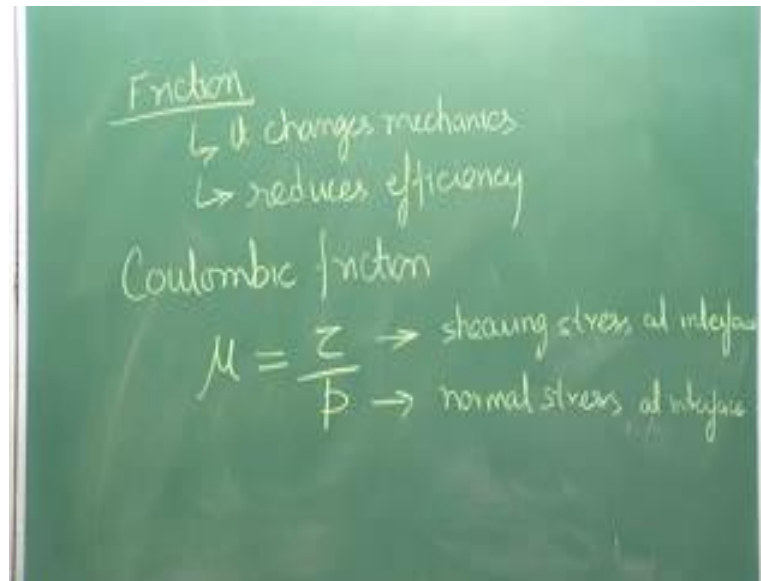 Friction
↳ It changes mechanics
↳ reduces efficiency
Coulombic friction
μ = τ/p
τ → shearing stress at interface
p → normal stress at interface